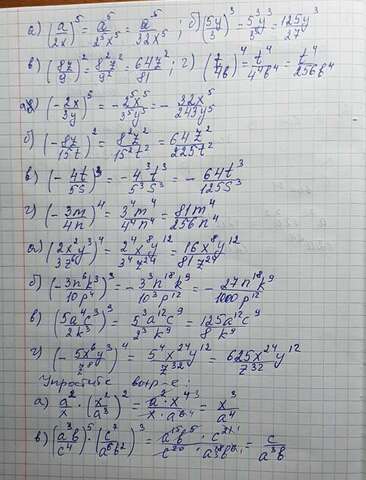 а) (a/2x)^5 = a^5/2^5x^5 = a^5/32x^5; б) (5y/3)^3 = 5^3y^3/3^3 = 125y^3/27
в) (8z/9)^2 = 8^2z^2/9^2 = 64z^2/81; г) (t/4b)^4 = t^4/4^4b^4 = t^4/256b^4
а) (-2x/3y)^5 = -2^5x^5/3^5y^5 = -32x^5/243y^5
б) (-8z/15t)^2 = 8^2z^2/15^2t^2 = 64z^2/225t^2
в) (-4t/5s)^3 = -4^3t^3/5^3s^3 = -64t^3/125s^3
г) (-3m/4n)^4 = 3^4m^4/4^4n^4 = 81m^4/256n^4
а) (2x^2y^3/3z^6)^4 = 2^4x^8y^12/3^4z^24 = 16x^8y^12/81z^24
б) (-3n^6k^3/10p^4)^3 = -3^3n^18k^9/10^3p^12 = -27n^18k^9/1000p^12
в) (5a^4c^3/2k^3)^3 = 5^3a^12c^9/2^3k^9 = 125a^12c^9/8k^9
г) (-5x^6y^3/z^8)^4 = 5^4x^24y^12/z^32 = 625x^24y^12/z^32
Упростите выр-е:
а) a^2/x · (x^2/a^3)^2 = a^2·x^4/x·a^6 = x^3/a^4
в) (a^3b/c^4)^5 · (c^7/a^6b^2)^3 = a^15b^5·c^21/c^20·a^18b^6 = c/a^3b